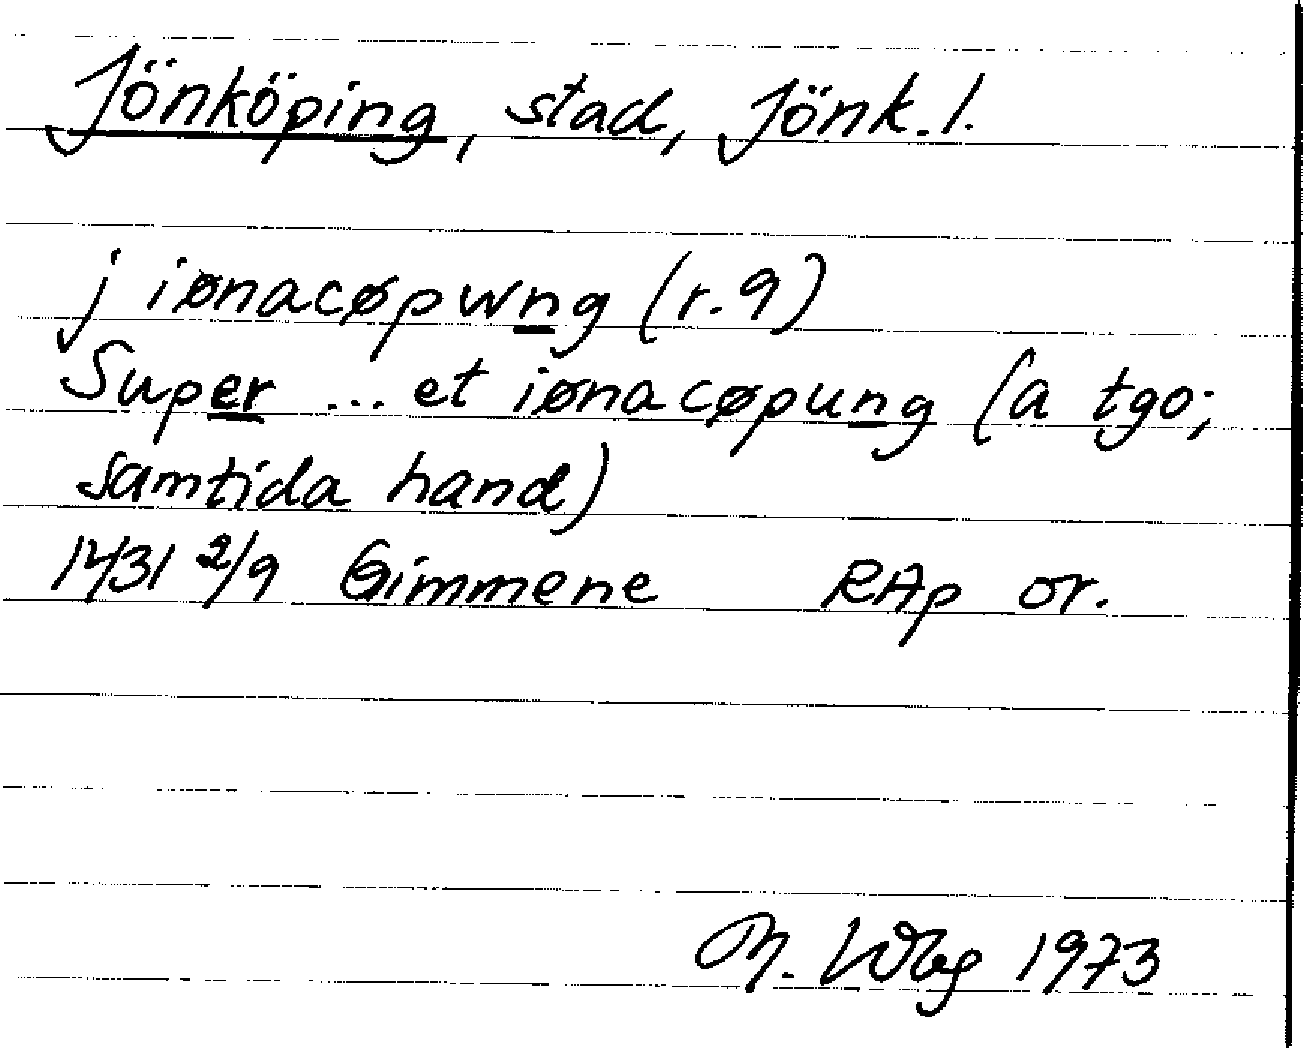 Jönköping, stad, Jönk. l.
j iønacøpwng (r. 9)
Super ... et iønacøpung (a tgo;
samtida hand)
1431 2/9 Gimmene RAp or.
M. Wbg 1973